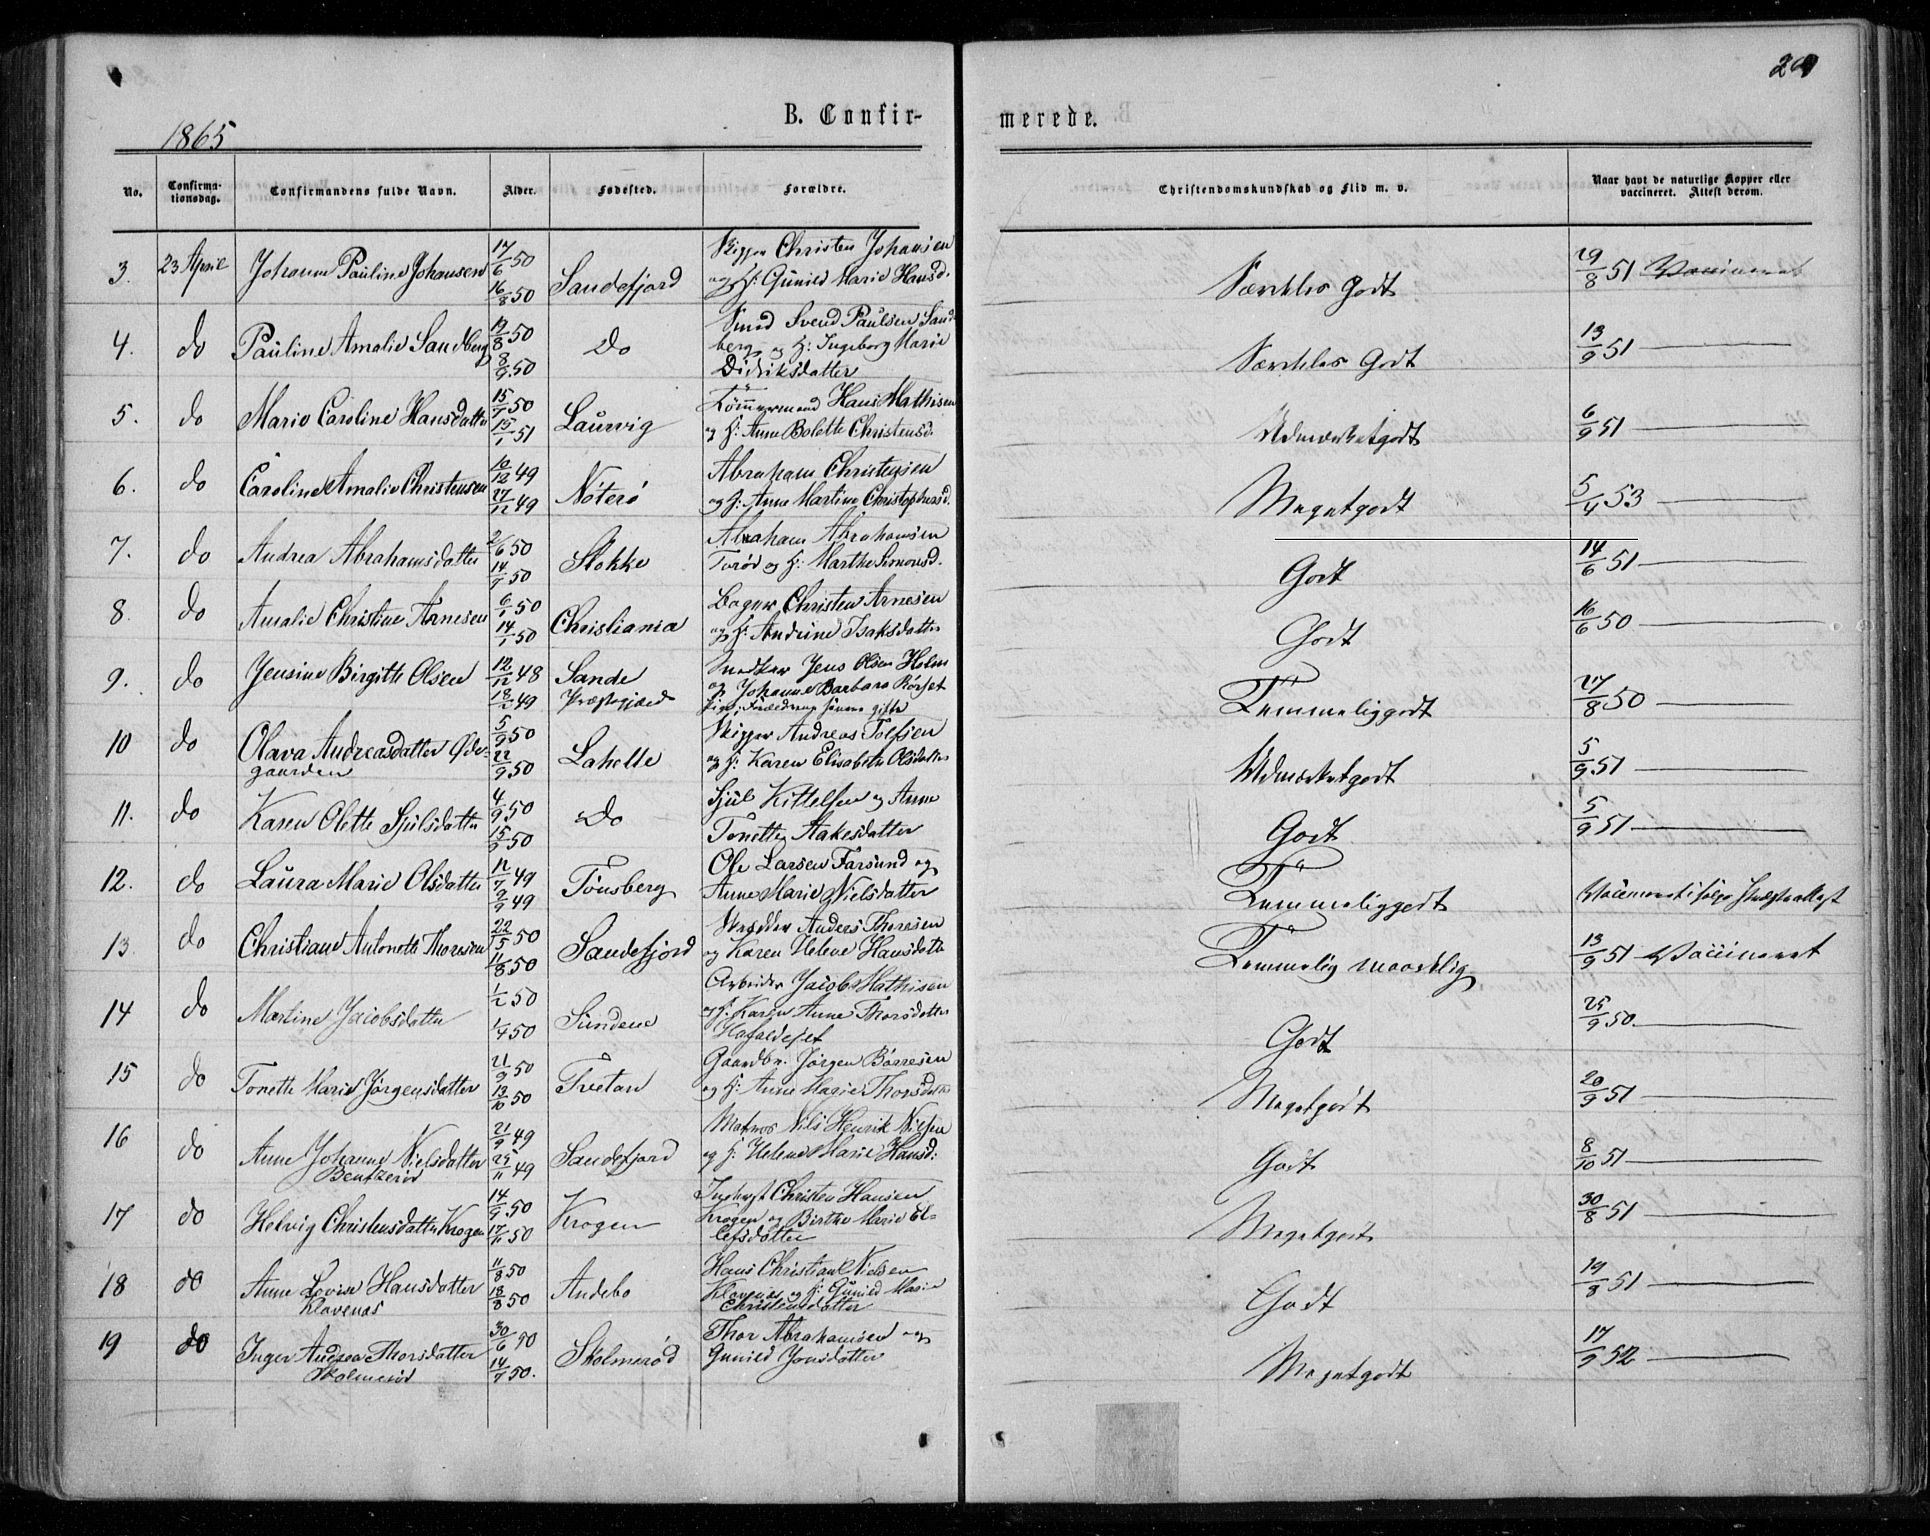 209
B. Confirmerede.
1865
No. Confirmationsdag. Confirmandens fulde Navn. Alder. Fødested. Forældre. Christendomskundskab og Flid m. v. Naar havt de naturlige Kopper eller vaccineret. Attest derom.
3. 23 April Johanne Pauline Johansen 17/6 50 16/8 50 Sandefjord Skipper Christen Johansen og H: Gunild Marie Hansd. Særdeles Godt 29/8 51 Vaccineret
4. do Pauline Amalie Sandberg 19/8 50 8/9 50 Do Smed Svend Paulsen Sandberg og H: Ingeborg Marie Didriksdatter Særdeles Godt 13/9 51
5. do Marie Caroline Hansdatter 15/7 50 15/1 51 Laurvig Tømmermand Hans Mathisen og H: Anne Bolette Christensd. Udmærket godt 6/9 51
6. do Caroline Amalie Christensen 10/12 49 27/12 49 Nøterø Abraham Christensen og H: Anne Martine Christophersd. Meget godt 5/4 53
7. do Andrea Abrahamsdatter 2/6 50 14/7 50 Stokke Abraham Abrahamsen Torød og H: Marthe Simonsd. Godt 14/6 51
8. do Amalie Christine Arnesen 6/1 50 14/1 50 Christiania Bager Christen Arnesen og H: Andrine Isaksdatter Godt 16/6 50
9. do Jensine Birgitte Olsen 12/12 48 18/2 49 Sande Præstegjæld Snedker Jens Olsen Holm og Johanne Barbara Rørset Temmelig godt 27/8 50
10 do Olava Andreasdatter Ødegaarden 5/9 50 22/9 50 Lahelle Skipper Andreas Tolfsen og H: Karen Elisabeth Olsdatter Udmærket godt 5/9 51
11. do Karen Olette Sjulsdatter 4/9 50 15/9 50 Do Sjul Kittelsen og Anne Tonette Aakesdatter Godt 5/9 51
12. do Laura Marie Olsdatter 12/7 49 9/9 49 Tønsberg Ole Larsen Farsund og Anne Marie Nielsdatter Temmelig godt Vaccineret ifølge Præsteattest
13 do Christiane Antonette Thoresen 22/5 50 11/8 50 Sandefjord Skrædder Anders Thoresen og Karen Helene Hansdatter Temmelig maadelig 13/9 51 Vaccineret
14 do Martine Jacobsdatter 1/2 50 1/4 50 Sundene Arbeider Jacob Mathisen og H: Karen Anne Thorsdatter Godt 25/9 50
15 do Tonette Marie Jørgensdatter 21/9 50 13/10 50 Tvetan Gaardbr. Jørgen Børresen og H: Anne Margie Thorsdatter Meget godt 20/9 51
16 do Anne Johanne Nielsdatter Bentzerød 21/9 49 25/11 49 Sandefjord Matros Nils Henrik Nielsen og H: Helene Marie Hansd: Godt 8/10 51
17 do Helvig Christensdatter Krogen 14/9 50 17/11 50 Krogen Inderst Christen Hansen Krogen og Birthe Marie Ellefsdatter Meget godt 30/8 51
18 do Anne Lovise Hansdatter Klavenæs 11/8 50 18/8 50 Andebo Hans Christian Nielsen Klavenæs og H: Gunild Marie Christensdatter Godt 19/8 51
19 do Inger Andrea Thorsdatter Skolmerød 30/6 50 14/7 50. Skolmerød Thor Abrahamsen og Gunild Jonsdatter Meget godt 17/9 52